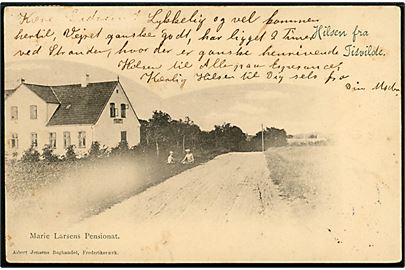 Kære Lykkelig og vel kommen
hertil, Vejret ganske godt, har ligget 2 Timer
Hilsen fra
ved Stranden, hvor der er ganske henrivende
Tisvilde.
Hilsen til Alle paa
Kærlig Hilsen til Dig selv fra
Din
Marie Larsens Pensionat.
Albert Jensens Boghandel, Frederiksværk.